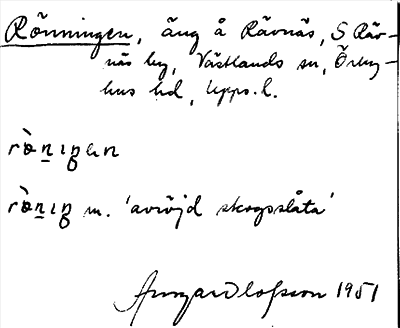 Rönningen, äng å Rävnäs, S Räv-
näs by, Västlands sn, Örby-
hus hd, Upps. l.
rö̀nıŋen
rö̀nıŋ m. 'avröjd skogsslåta'
Olofsson 1951